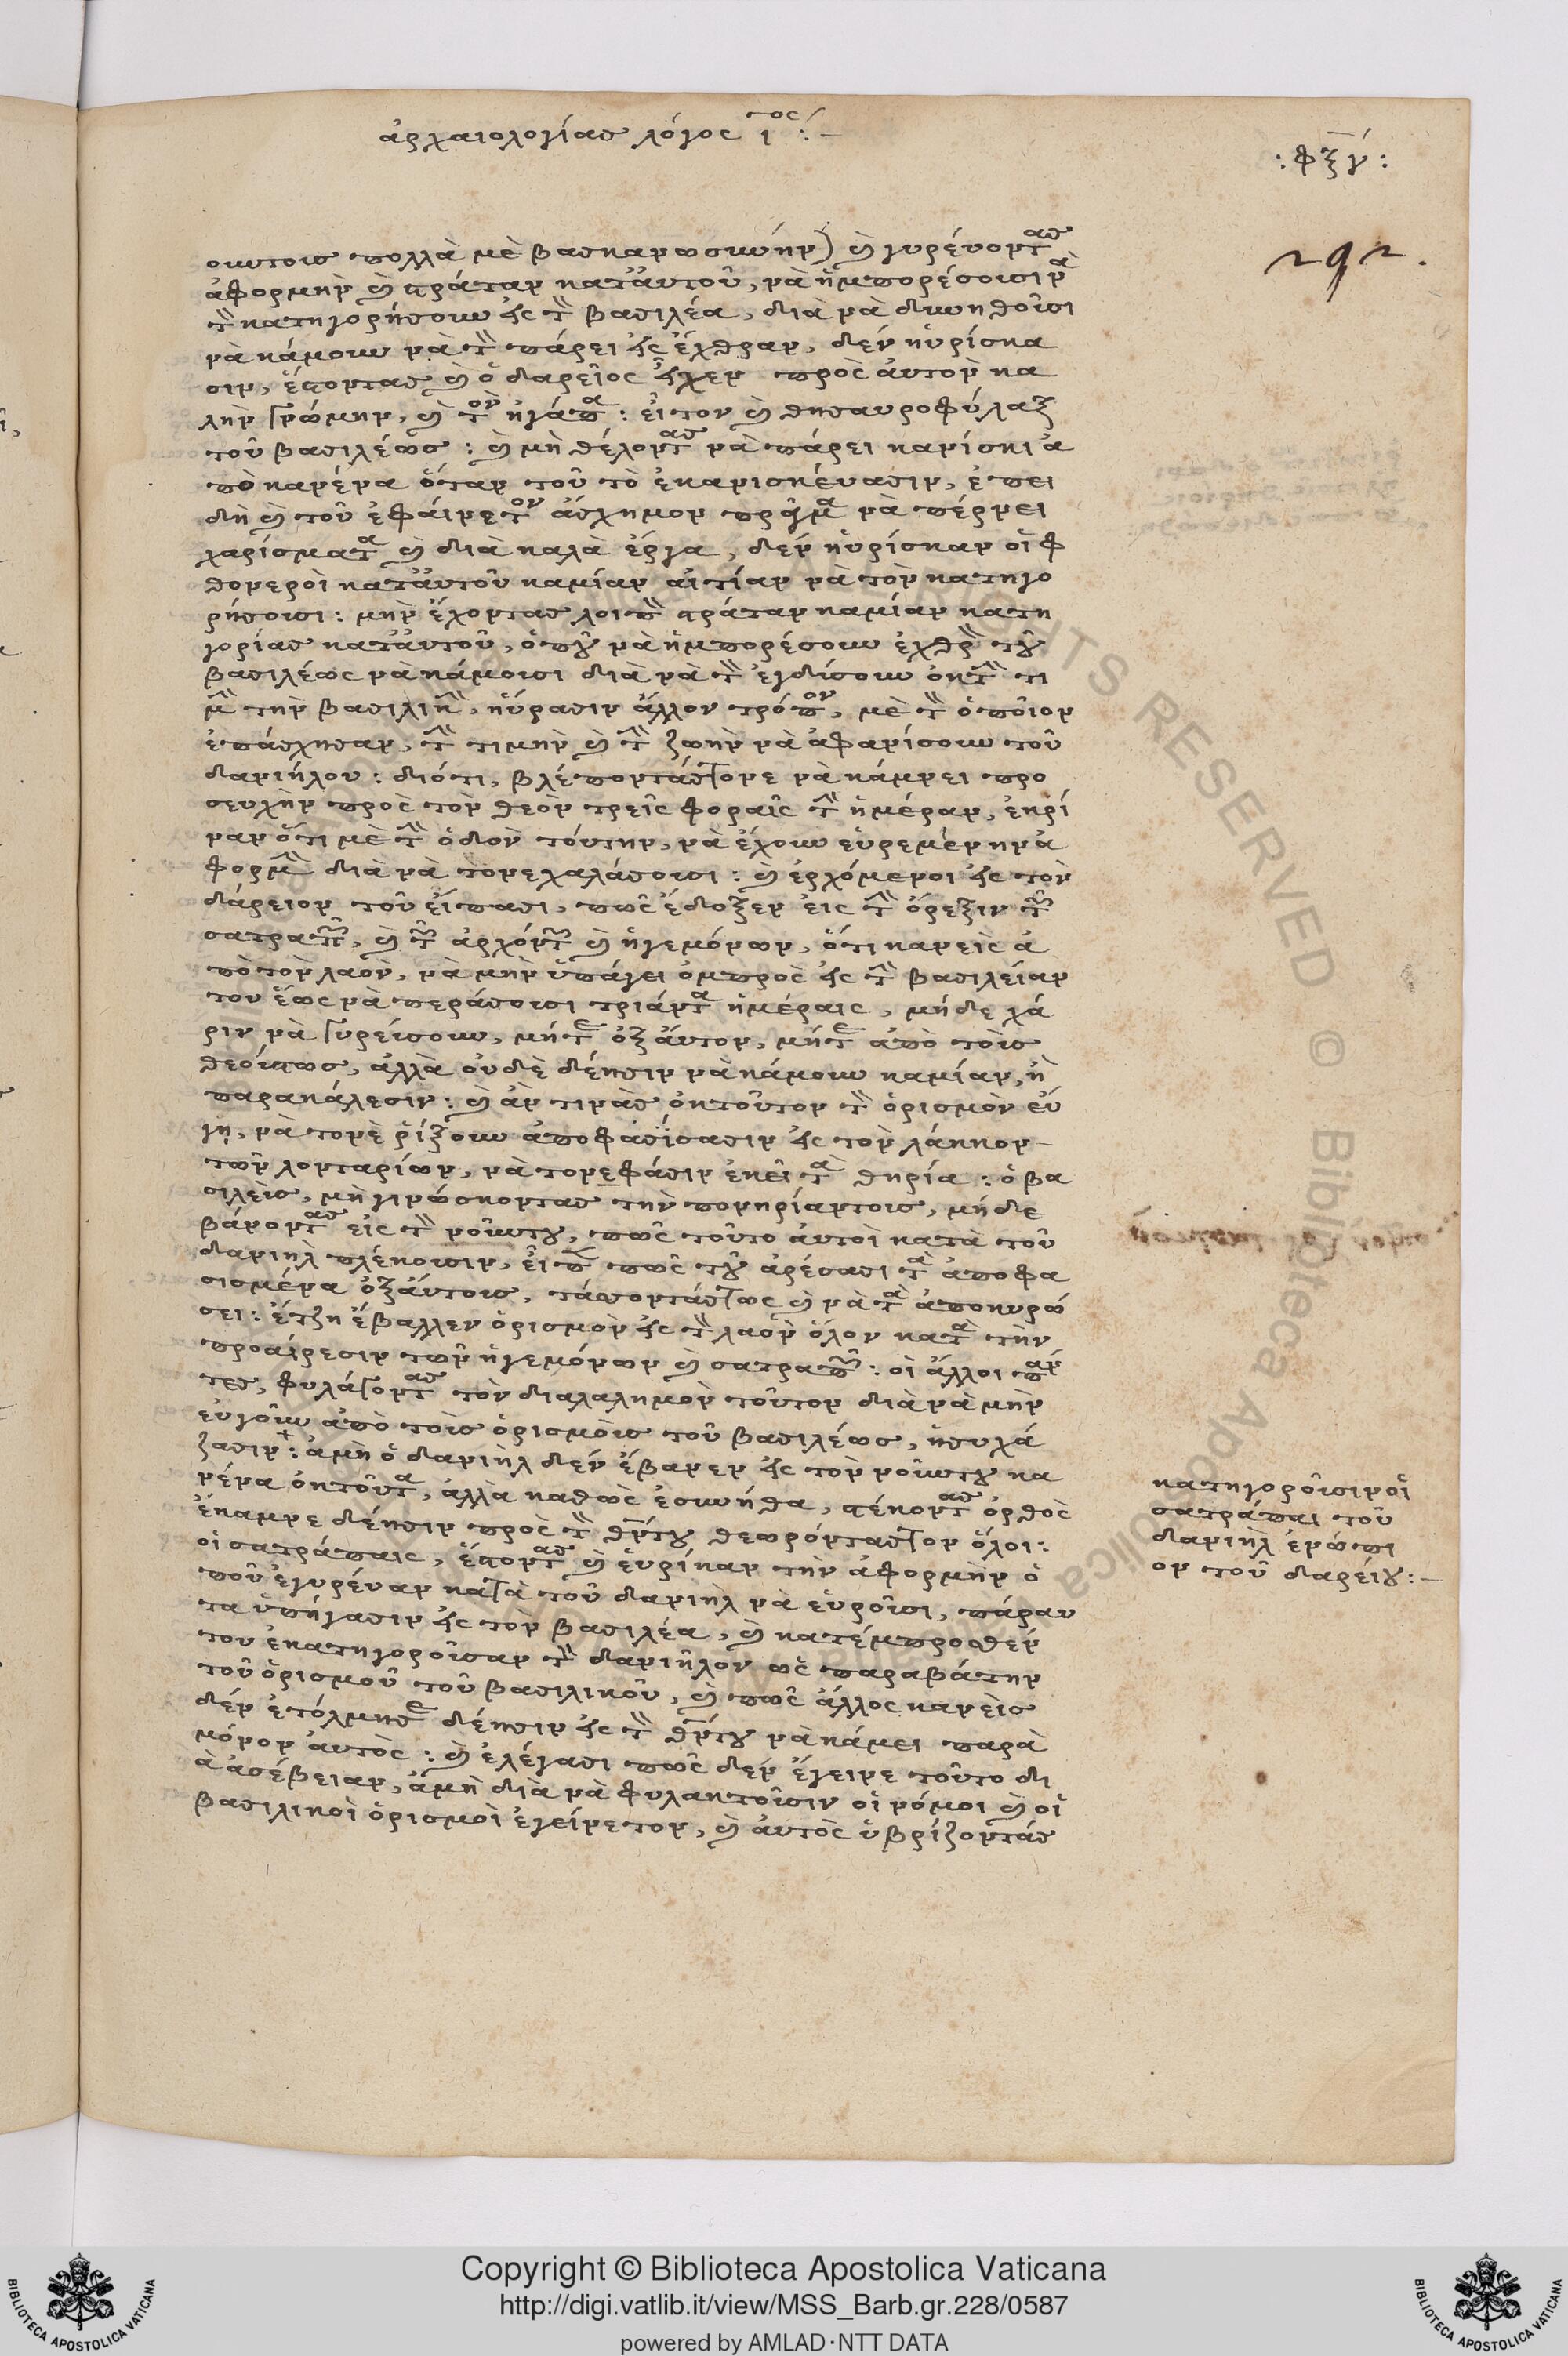 ἀρχαιολογίας λόγος ιτος :–
: φξγ :
292.
οιυτοις πολλὰ μὲ βασκανωσιύνην) καὶ γυρέυοντας
ἀφορμὴν καὶ πράταν κατἀυτοῦ, νὰ ἠμπορέσοισι νὰ
τὸν κατηγορήσουν εἰς τὸν βασιλέα, διὰ νὰ διωηθοῦσι
νὰ κάμουν νὰ τὸν πάρει εἰς ἔχθραν, δὲν ηὑρίσκα
σιν, ἔστοντας καὶ ὁ δαρεῖος εἶχεν πρὸς ἀυτον κα
λὴν γνώμην, καὶ τὸν ἠγάπα: εἶτον καὶ θησαυροφύλαξ
τοῦ βασιλέως: καὶ μὴ θέλοντας νὰ πάρει κανίσκι ἀ
πὸ κανένα ὅταν τοῦ τὸ ἐκανισκέυασιν, ἐπει
δὴ καὶ τοῦ ἐφάινετον ἄσχημον πρᾶγμα νὰ πέρνει
χαρίσματα καὶ διὰ καλὰ ἔργα, δὲν ηὑρίσκαν οἱ φ
θονεροὶ κατἀυτοῦ καμίαν αἰτίαν νὰ τὸν κατηγο
ρήσοισι: μὴν ἔχοντας λοιπὸν πράταν καμίαν κατη
γορίας κατἀυτοῦ, ὁποῦ νὰ ἠμπορέσουν ἐχθρὸν τοῦ
βασιλέως νὰ κάμοισι διὰ νὰ τὸν ἐγδίσουν ὀκτὴν τι
μὴν τὴν βασιλικὴν, ηὕρασιν ἄλλον τρόπον, μὲ τὸν ὁποῖον
ἐπάσχησαν, τὴν τιμὴν καὶ τὴν ζωὴν νὰ ἀφανίσουν τοῦ
δανιήλου: διότι, βλέποντάς τονε νὰ κάμνει προ
σευχὴν πρὸς τὸν θεὸν τρεῖς φοραῖς τὴν ἡμέραν, ἐκρί
ναν ὅτι μὲ τὴν ὁδὸν τόυτην, νὰ ἔχουν εὑρεμένην ἀ
φορμὴν διὰ νὰ τονεχαλάσοισι: καὶ ἐρχόμενοι εἰς τὸν
δάρειον τοῦ εἴπασι, πῶς ἔδοξεν εἰς τὴν ὄρεξιν τῶν
σατραπῶν, καὶ τῶν ἀρχόντων καὶ ἡγεμόνων, ὅτι κανεὶς ἀ
πὸ τὸν λαὸν, νὰ μὴν ὑπάγει ὀμπρὸς εἰς τὴν βασιλείαν
του ἕως νὰ περάσοισι τριάντα ἡμέραις, μήδε χά
ριν νὰ γυρεύσουν, μήτε ὀξἀυτον, μήτε ἀπὸ τοὶς
θεόυτως, ἀλλὰ οὐδὲ δέησιν νὰ κάμουν καμίαν, ἢ
παρακάλεσιν: καὶ ἂν τινὰς ὀκτοῦτον τὸν ὁρισμὸν εὔ
γη, νὰ τονὲ ῥίξουν ἀποφασίσασιν εἰς τὸν λάκκον –
τῶν λονταρίων, νὰ τονεφάσιν ἐκεῖ τὰ θηρία: ὁ βα
σιλεὶς, μὴ γινώσκοντας τὴν πονηρίαντοις, μήδε
βάνοντας εἰς τὸν νοῦντου, πῶς τοῦτο ἀυτοὶ κατὰ τοῦ
δανιὴλ πλέκοισιν, εἶπε πῶς τοῦ ἀρέσασι τὰ ἀποφα
σισμένα ὀξἀυτοις, τάσοντάς τως καὶ νὰ τὰ ἀποκυρώ
σει: ἔτζη ἔβαλλεν ὁρισμὸν εἰς τὸν λαὸν ὅλον κατὰ τὴν
προαίρεσιν τῶν ἡγεμόνων καὶ σατραπῶν: οἱ ἄλλοι πάν
τες, φυλάγοντας τὸν διαλαλημὸν τοῦτον διὰ νὰ μὴν
ευγοῦν ἀπὸ τοὶς ὁρισμόις τοῦ βασιλέως, ἡσυχά
ζασιν: ἀμὴ ὁ δανιὴλ δὲν ἔβανεν εἰς τὸν νοῦντου κα
νένα ὀκτοῦτα, ἀλλὰ καθὼς ἐσυνήθα, στέκοντας ὀρθὸς
ἔκαμνε δέησιν πρὸς τὸν θεόντου θεωρόντάς τον ὅλοι:
οἱ σατράπαις, ἔστοντας καὶ ἑυρίκαν τὴν ἀφορμὴν ὁ
ποῦ ἐγυρέυαν κατὰ τοῦ δανιὴλ νὰ εὑροῦσι, πάραυ
τα ὑπήγασιν εἰς τὸν βασιλέα, καὶ κατέμπροσθέν
του ἐκατηγοροῦσαν τὸν δανιῆλον ὡς παραβάτην
τοῦ ὁρισμοῦ τοῦ βασιλικοῦ, καὶ πῶς ἄλλος κανεὶς
δὲν ἐτόλμησε δέησιν εἰς τὸν θεόντου νὰ κάμει παρὰ
μόνον ἀυτὸς: καὶ ἐλέγασι πῶς δὲν ἔγεινε τοῦτο δι
ὰ ἀσέβειαν, ἀμὴ διὰ νὰ φυλακτοῦσιν οἱ νόμοι καὶ οἱ
βασιλικοὶ ὁρισμοὶ ἐγείνετον, καὶ ἀυτὸς ὑβρίζοντάς
κατηγοροῦσιν οἱ
σατράπαι τοῦ
δανιὴλ ἐνώπι
ον τοῦ δαρείου:–
RIGHTS RESERVED © Biblioteca Apostolica
Copyright © Biblioteca Apostolica Vaticana
http://digi.vatlib.it/view/MSS_Barb.gr.228/0587
powered by AMLAD·NTT DATA
BIBLIOTECA APOSTOLICA VATICANA
BIBLIOTECA APOSTOLICA VATICANA